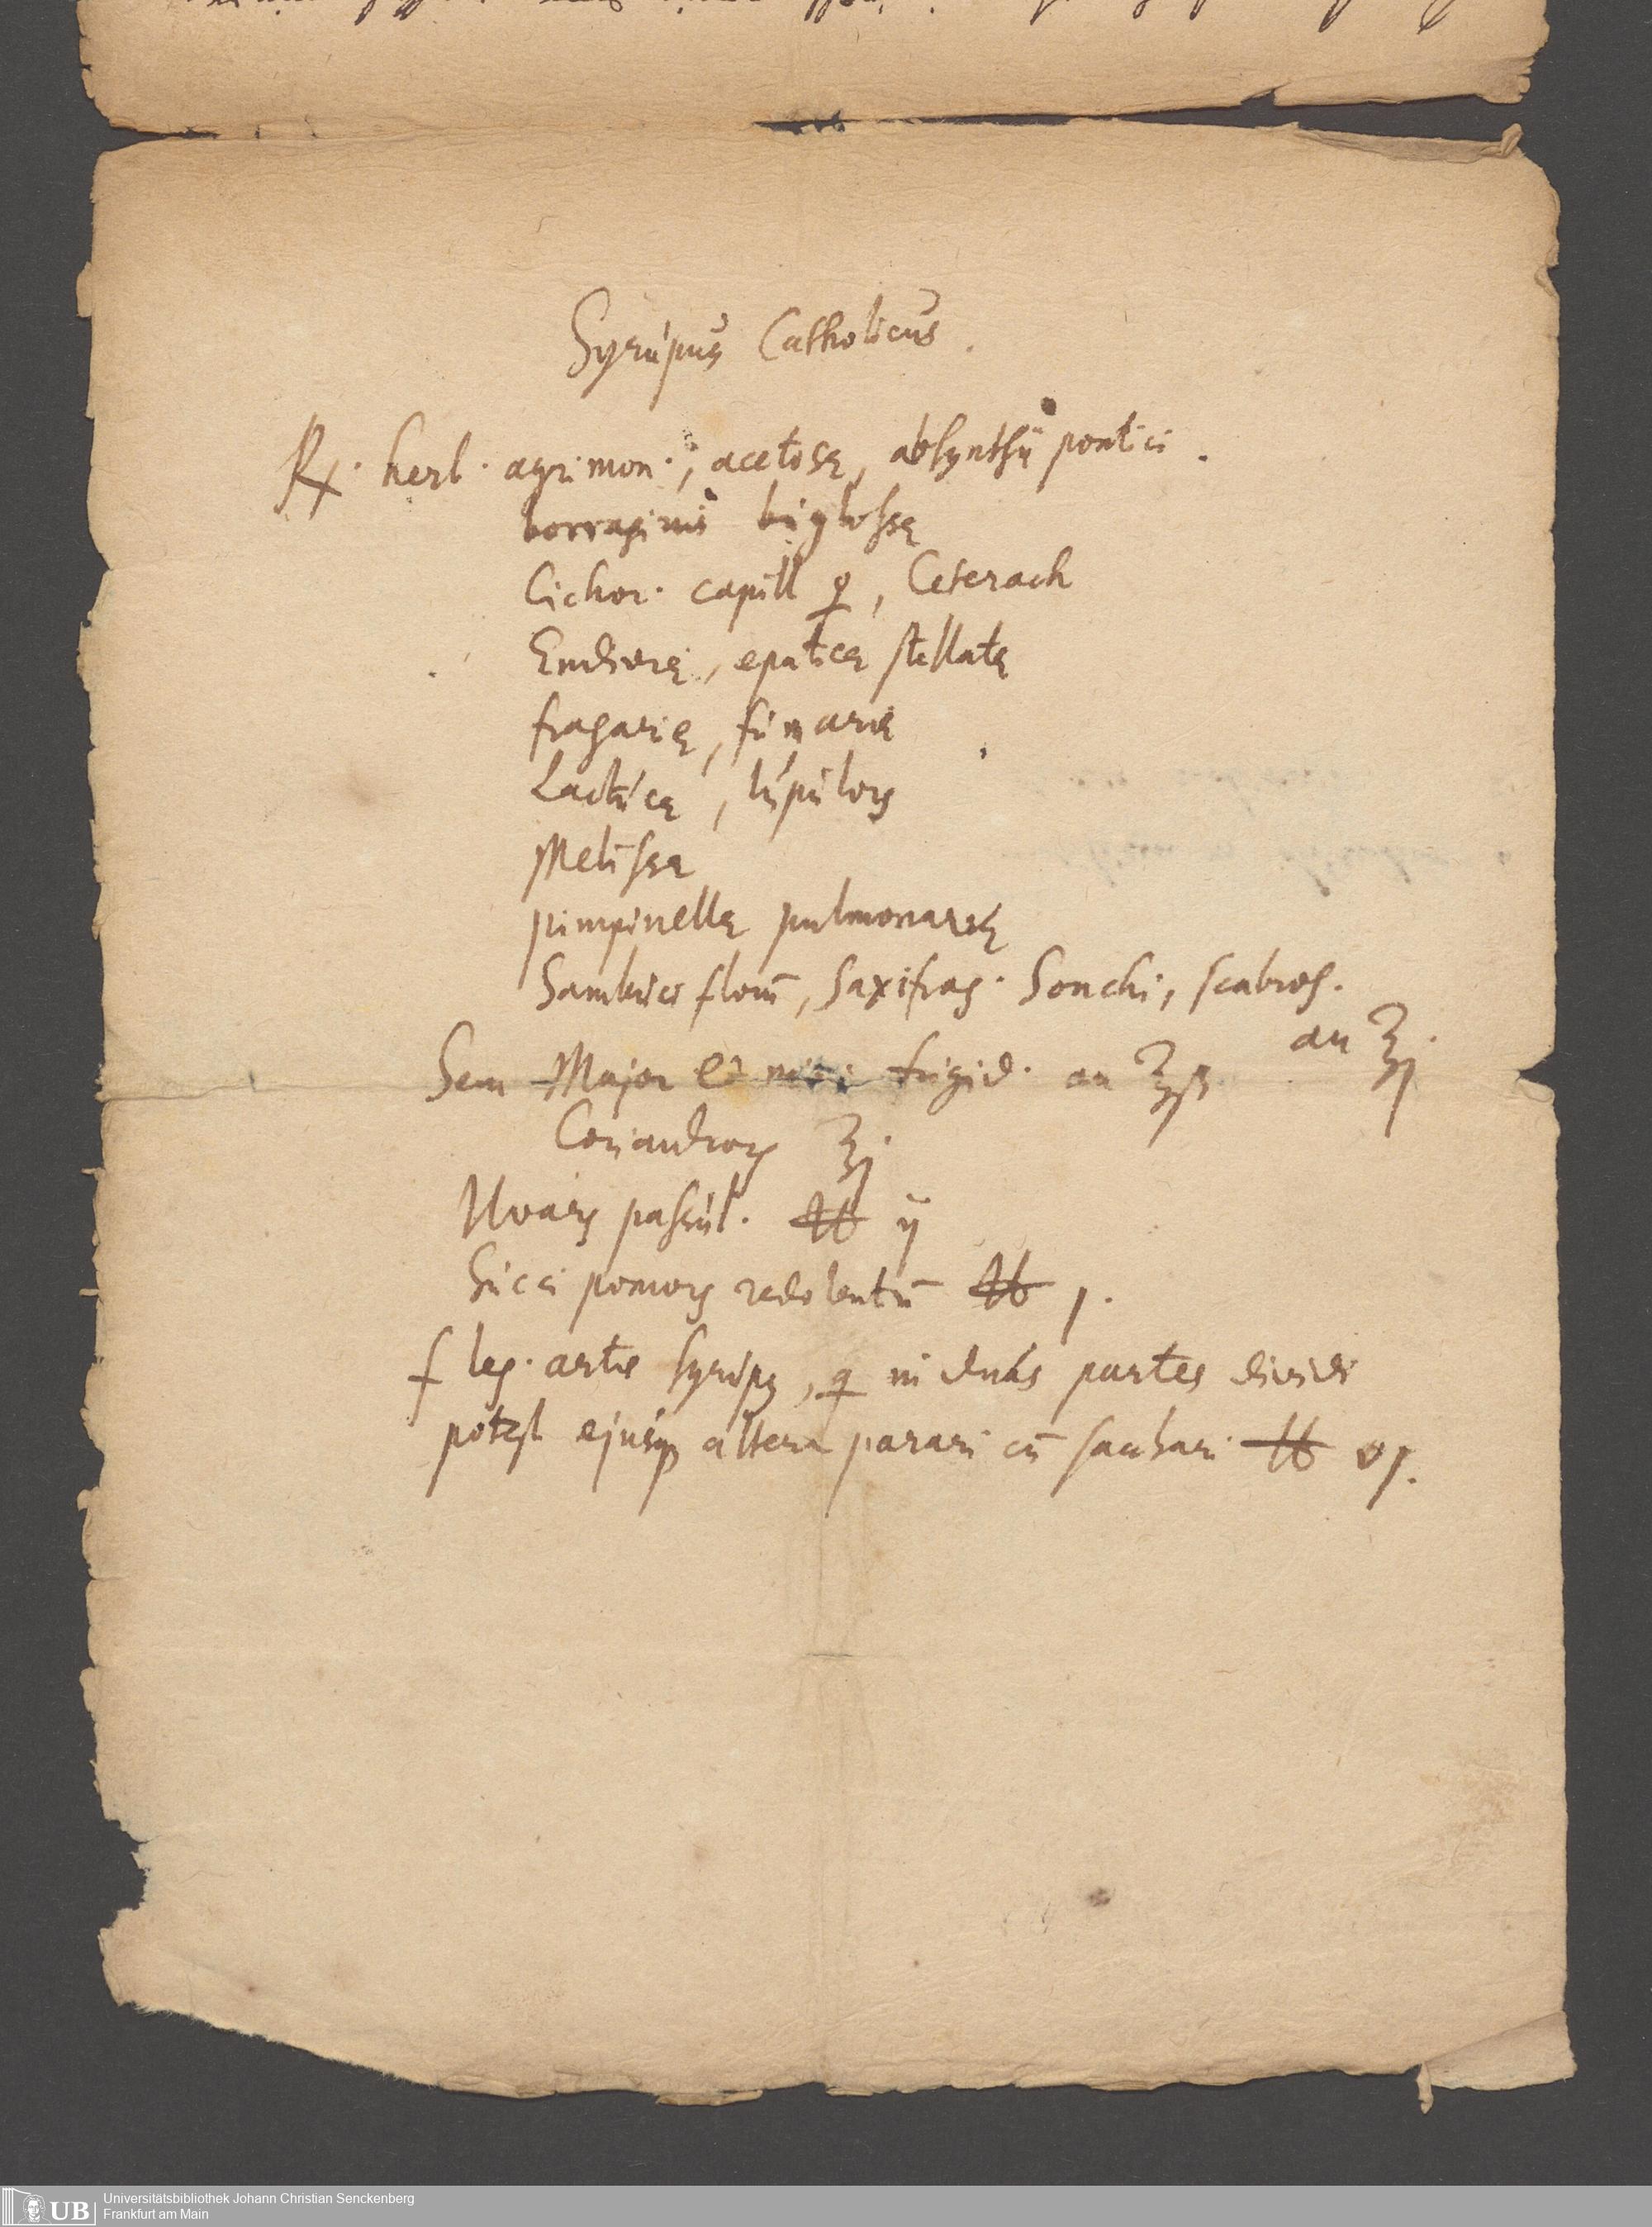 Syrupus Catholicus.
℞. herb. agrimon., acetosę, absynthij pontici.
borraginis buglossę
Cichor. capill ♀, Ceterach
Endivię, epaticę stellatę
fragarię, fumarię
Lactucę, lupuloꝝ
Melissę
pimpinellę pulmonarię
Sambuci florū, Saxifrag. Sonchi, scabios.
an ℥j.
Sem Major et mi frigid. an ℥ß
Coriandroꝝ ℥j.
Uvaꝝ passul. ℔ ij
Succi pomoꝝ redolentū ℔ j.
f leg. artis syrupꝰ, q in duas partes dividi
potest ejusqꝫ altera parari cū sacchari ℔ vj.
UB Universitätsbibliothek Johann Christian Senckenberg
Frankfurt am Main